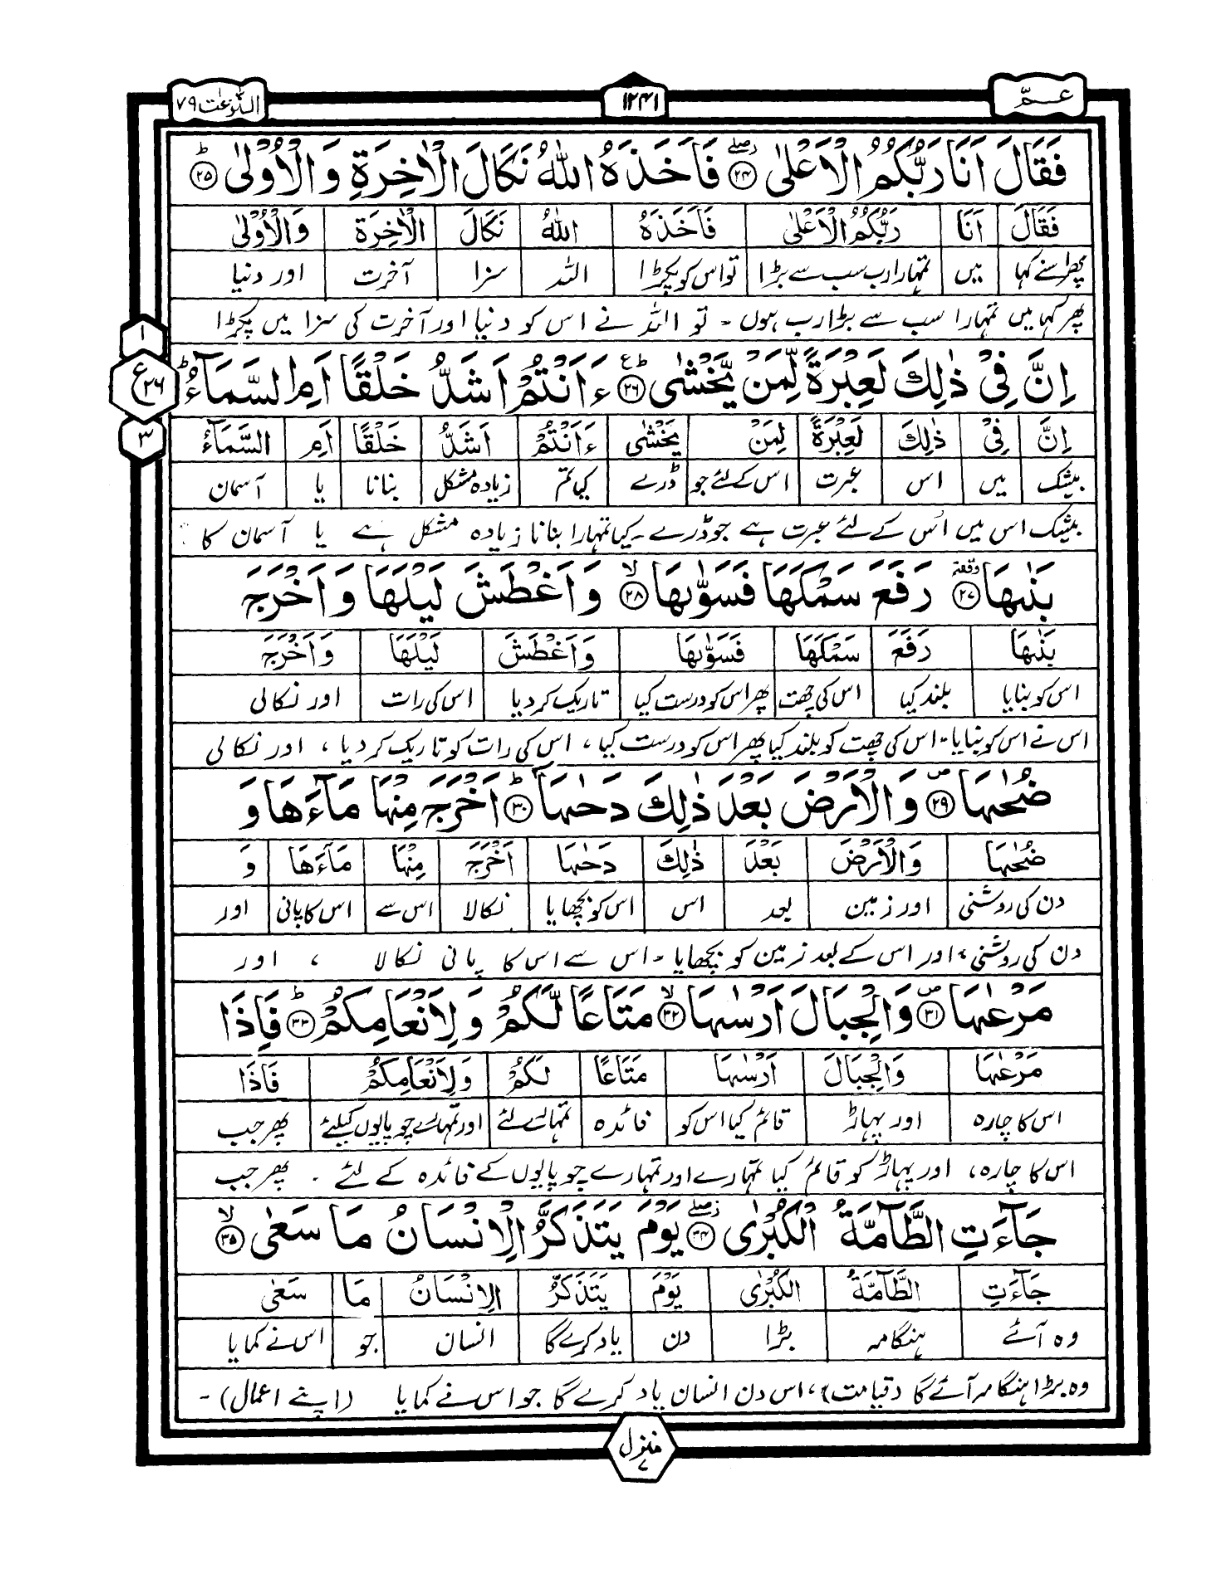 عـمّ
۱۲۴۱
النّٰزعٰت ۷۹
فَقَالَ اَنَا رَبُّكُمُ الْاَعْلٰى ۲۴ فَاَخَذَهُ اللّٰهُ نَكَالَ الْاٰخِرَةِ وَالْاُوْلٰى ؕ ۲۵
فَقَالَ اَنَا رَبُّكُمُ الْاَعْلٰى فَاَخَذَهُ اللّٰهُ نَكَالَ الْاٰخِرَةِ وَالْاُوْلٰى
پھر اسنے کہا میں تمہارا رب سب سے بڑا تو اس کو پکڑا اللہ سزا آخرت اور دنیا
پھر کہا میں تمہارا سب سے بڑا رب ہوں ۔ تو اللہ نے اس کو دنیا اور آخرت کی سزا میں پکڑا
۱
اِنَّ فِىْ ذٰلِكَ لَعِبْرَةً لِّمَنْ يَّخْشٰى ؕ ۲۶ ءَاَنْتُمْ اَشَدُّ خَلْقًا اَمِ السَّمَآءُ ؕ
ع ۲۶
۳
اِنَّ فِىْ ذٰلِكَ لَعِبْرَةً لِمَنْ يَخْشٰى ءَاَنْتُمْ اَشَدُّ خَلْقًا اَمِ السَّمَآءُ
بیشک میں اس عبرت اس کے لئے جو ڈرے کیا تم زیادہ مشکل بنانا یا آسمان
بیشک اس میں اس کے لئے عبرت ہے جو ڈرے ۔ کیا تمہارا بنانا زیادہ مشکل ہے یا آسمان کا
بَنٰىهَا ۲۷ رَفَعَ سَمْكَهَا فَسَوّٰىهَا ۙ ۲۸ وَاَغْطَشَ لَيْلَهَا وَاَخْرَجَ
بَنٰىهَا رَفَعَ سَمْكَهَا فَسَوّٰىهَا وَاَغْطَشَ لَيْلَهَا وَاَخْرَجَ
اس کو بنایا بلند کیا اس کی چھت پھر اس کو درست کیا تاریک کر دیا اس کی رات اور نکالی
اس نے اس کو بنایا ۔ اس کی چھت کو بلند کیا پھر اس کو درست کیا ، اس کی رات کو تاریک کر دیا ، اور نکالی
ضُحٰىهَا ۲۹ وَالْاَرْضَ بَعْدَ ذٰلِكَ دَحٰىهَا ؕ ۳۰ اَخْرَجَ مِنْهَا مَآءَهَا وَ
ضُحٰىهَا وَالْاَرْضَ بَعْدَ ذٰلِكَ دَحٰىهَا اَخْرَجَ مِنْهَا مَآءَهَا وَ
دن کی روشنی اور زمین بعد اس اس کو بچھایا نکالا اس سے اس کا پانی اور
دن کی روشنی ، اور اس کے بعد زمین کو بچھایا ۔ اس سے اس کا پانی نکالا ، اور
مَرْعٰىهَا ۳۱ وَالْجِبَالَ اَرْسٰىهَا ۙ ۳۲ مَتَاعًا لَّكُمْ وَلِاَنْعَامِكُمْ ؕ ۳۳ فَاِذَا
مَرْعٰىهَا وَالْجِبَالَ اَرْسٰىهَا مَتَاعًا لَكُمْ وَلِاَنْعَامِكُمْ فَاِذَا
اس کا چارہ اور پہاڑ قائم کیا اس کو فائدہ تمہارے لئے اور تمہارے چوپایوں کیلئے پھر جب
اس کا چارہ ، اور پہاڑ کو قائم کیا تمہارے اور تمہارے چوپایوں کے فائدہ کے لئے ۔ پھر جب
جَآءَتِ الطَّآمَّةُ الْكُبْرٰى ۳۴ يَوْمَ يَتَذَكَّرُ الْاِنْسَانُ مَا سَعٰى ۙ ۳۵
جَآءَتِ الطَّآمَّةُ الْكُبْرٰى يَوْمَ يَتَذَكَّرُ الْاِنْسَانُ مَا سَعٰى
وہ آئے ہنگامہ بڑا دن یاد کرے گا انسان جو اس نے کمایا
وہ بڑا ہنگامہ آئے گا (قیامت) ، اس دن انسان یاد کرے گا جو اس نے کمایا (اپنے اعمال) ۔
منزل ۷